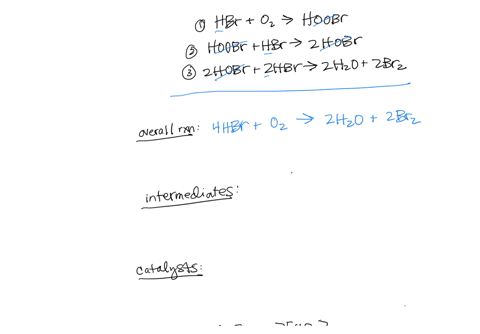 ① HBr + O₂ → HOOBr
② HOOBr + HBr → 2HOBr
③ 2HOBr + 2HBr → 2H₂O + 2Br₂
overall rxn: 4HBr + O₂ → 2H₂O + 2Br₂
intermediates:
catalysts: